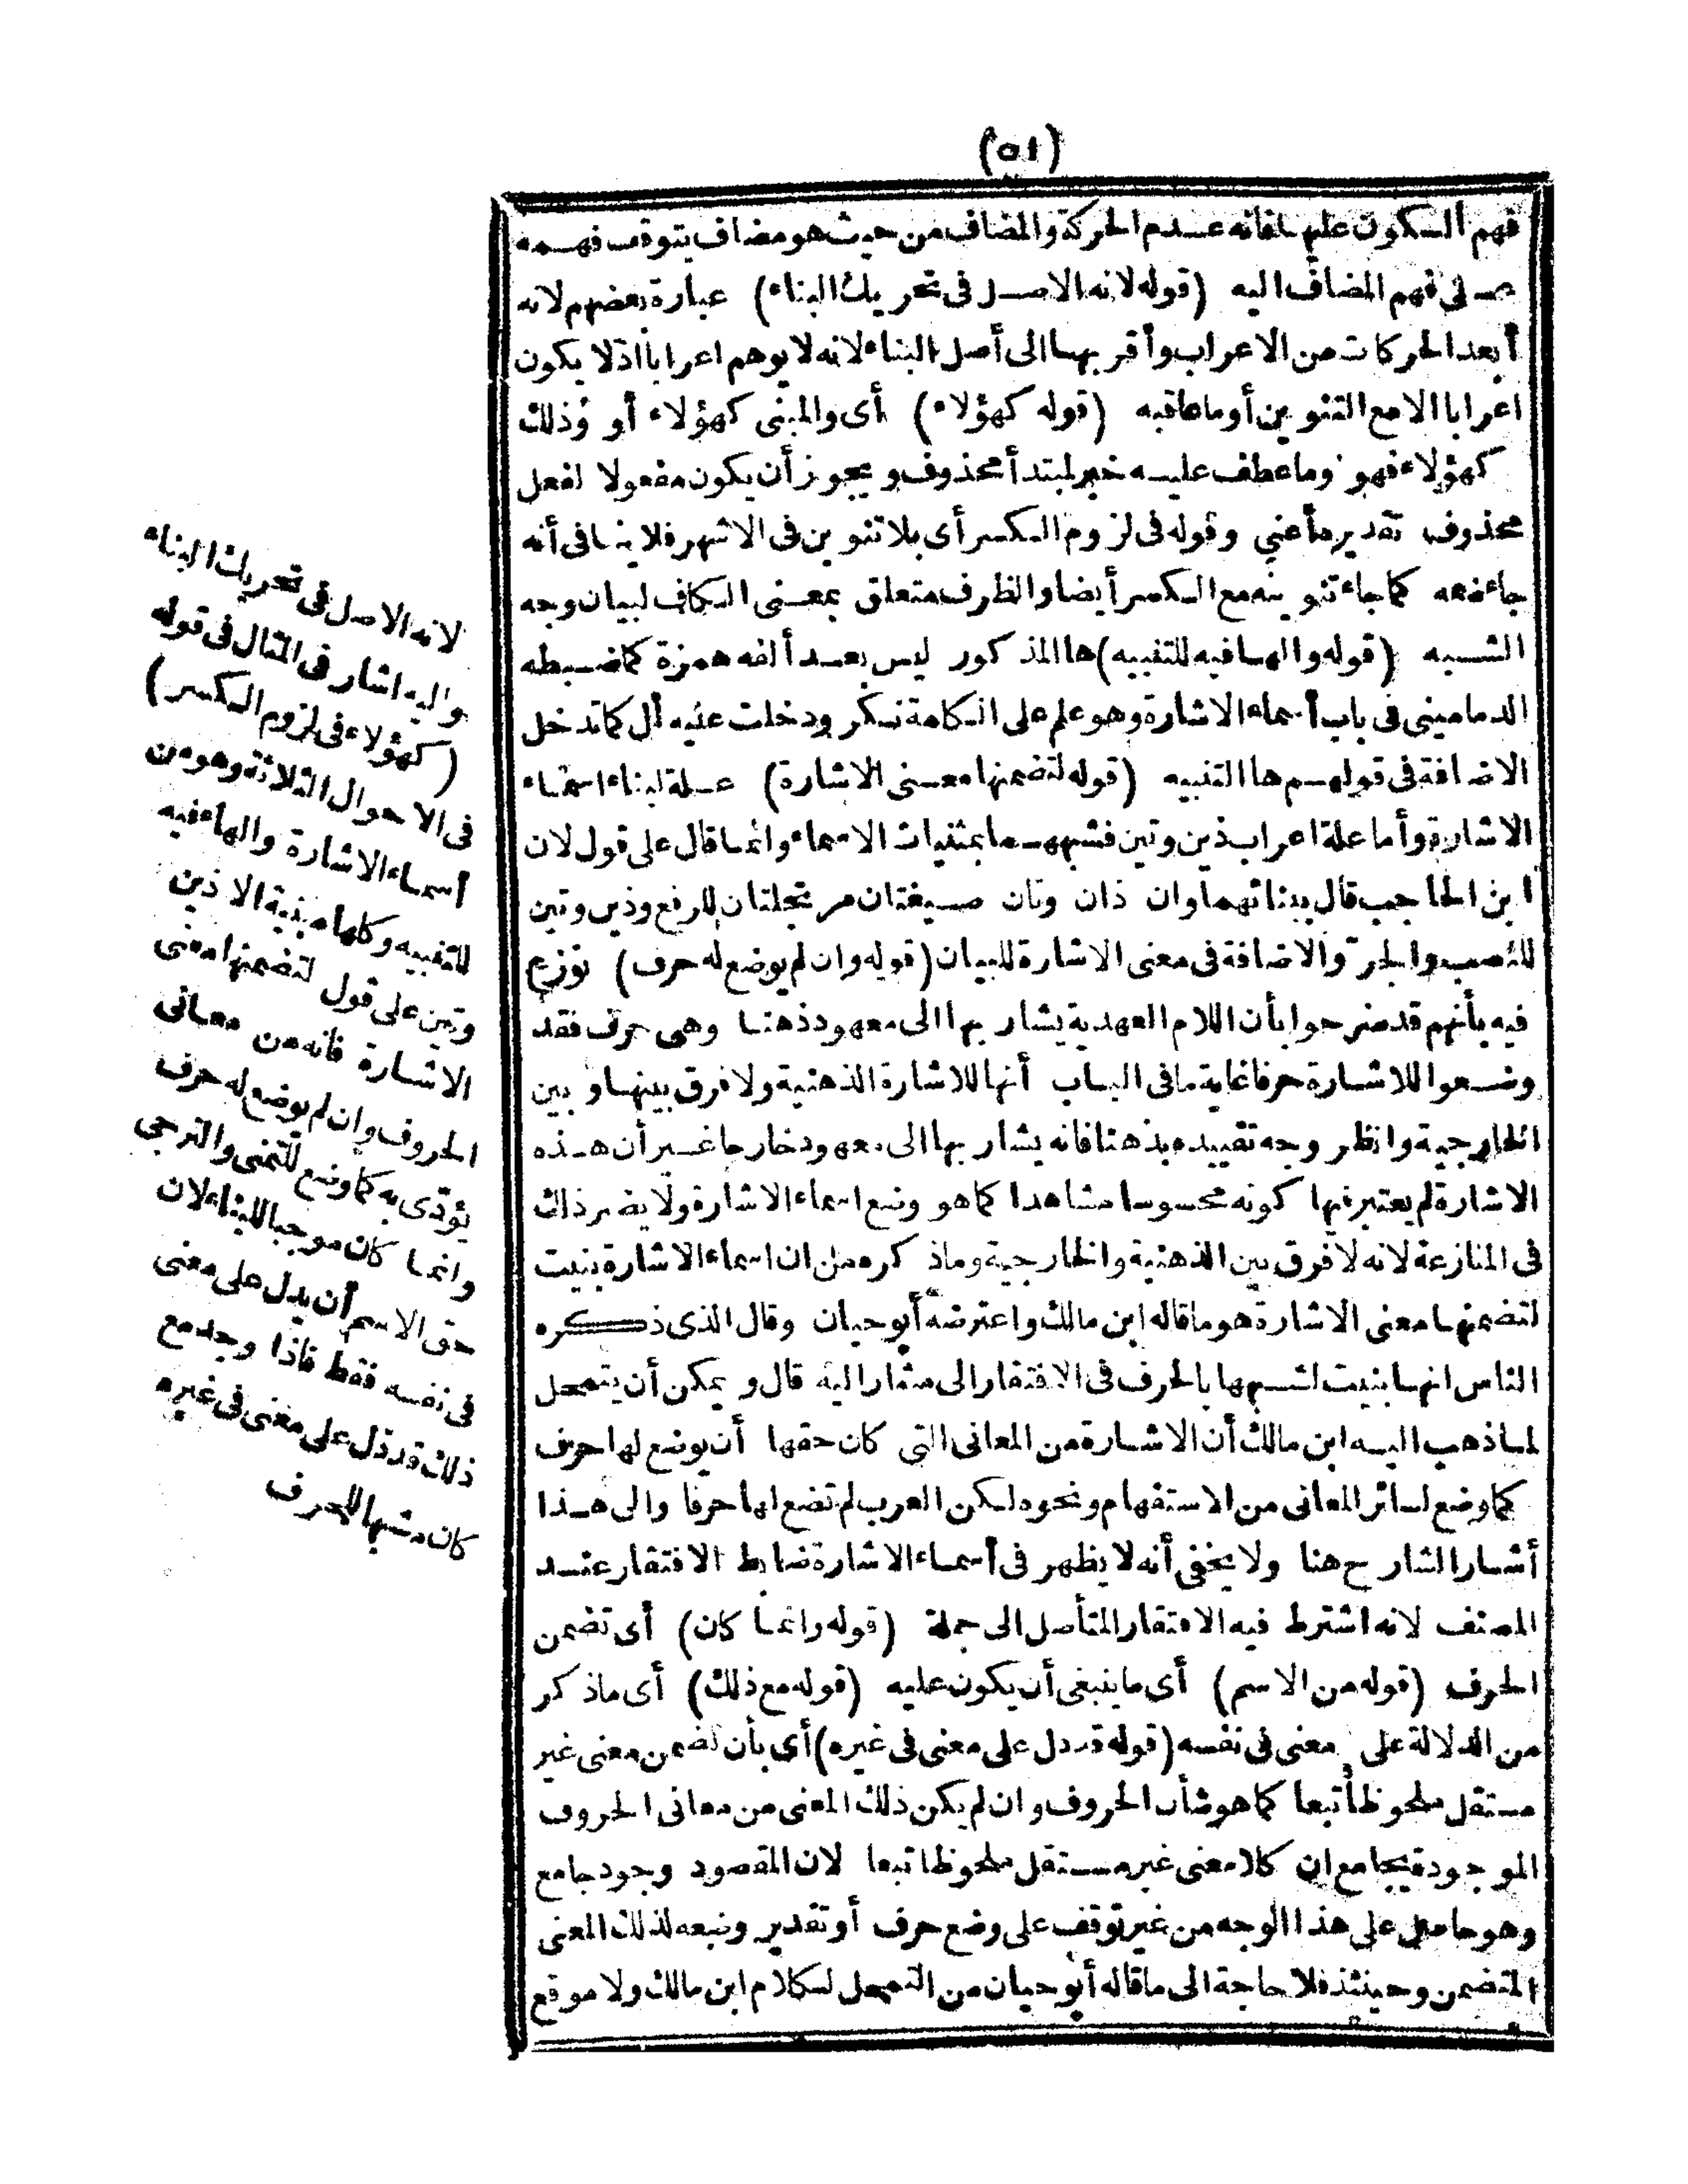 (٥١)
فهم السكون عليها فانه عدم الحركة والمضاف من حيث هو مضاف يتوقف فهمه
على فهم المضاف اليه (قوله لانه الاصل فى تحريك البناء) عبارة بعضهم لانه
أبعد الحركات من الاعراب وأقربها الى أصل البناء لانه لا يوهم اعرابا اذ لا يكون
اعرابا الا مع التنوين أو ما عاقبه (قوله كهؤلاء) أى والمبنى كهؤلاء أو وذلك
كهؤلاء فهو وما عطف عليه خبر لمبتدأ محذوف ويجوز أن يكون مفعولا لفعل
محذوف تقديره أعني وقوله فى لزوم الكسر أى بلا تنوين فى الاشهر فلا ينافى أنه
جاء ضمه كما جاء تنوينه مع الكسر أيضا والظرف متعلق بمعنى الكاف لبيان وجه
الشبه (قوله والهاء فيه للتنبيه) ها المذكور ليس بعد ألفه همزة كما ضبطه
الدمامينى فى باب أسماء الاشارة وهو علم على الكلمة نكر ودخلت عليه أل كما تدخل
الاضافة فى قولهم ها التنبيه (قوله لتضمنها معنى الاشارة) علة لبناء اسماء
الاشارة وأما علة اعراب ذين وتين فشبههما بمثنيات الاسماء وانما قال على قول لان
ابن الحاجب قال ببنائهما وان ذان وتان صيغتان مرتجلتان للرفع وذين وتين
للنصب والجر والاضافة فى معنى الاشارة للبيان (قوله وان لم يوضع له حرف) نوزع
فيه بأنهم قد صرحوا بأن اللام العهدية يشار بها الى معهود ذهنا وهى حرف فقد
وضعوا للاشارة حرفا غاية ما فى الباب أنها للاشارة الذهنية ولا فرق بينها وبين
الخارجية وانظر وجه تقييده بذهنا فانه يشار بها الى معهود خارجا غير أن هذه
الاشارة لم يعتبر فيها كونه محسوسا مشاهدا كما هو وضع اسماء الاشارة ولا يضر ذلك
فى المنازعة لانه لا فرق بين الذهنية والخارجية وما ذكره من ان اسماء الاشارة بنيت
لتضمنها معنى الاشارة هو ما قاله ابن مالك واعترضه أبو حيان وقال الذى ذكره
الناس انها بنيت لشبهها بالحرف فى الافتقار الى مشار اليه قال ويمكن أن يتمحل
لما ذهب اليه ابن مالك أن الاشارة من المعانى التى كان حقها أن يوضع لها حرف
كما وضع لسائر المعانى من الاستفهام ونحوه لكن العرب لم تضع لها حرفا والى هذا
أشار الشارح هنا ولا يخفى أنه لا يظهر فى أسماء الاشارة ضابط الافتقار عند
المصنف لانه اشترط فيه الافتقار المتأصل الى جملة (قوله وانما كان) أى تضمن
الحرف (قوله من الاسم) أى ما ينبغى أن يكون عليه (قوله مع ذلك) أى ما ذكر
من الدلالة على معنى فى نفسه (قوله قد دل على معنى فى غيره) أى بأن تضمن معنى غير
مستقل ملحوظا تبعا كما هو شأن الحروف وان لم يكن ذلك المعنى من معانى الحروف
الموجودة بجامع ان كلا معنى غير مستقل ملحوظا تبعا لان المقصود وجود جامع
وهو حاصل على هذا الوجه من غير توقف على وضع حرف أو تقدير وضعه لذلك المعنى
المتضمن وحينئذ فلا حاجة الى ما قاله أبو حيان من التمحل لكلام ابن مالك ولا موقع
لانه الاصل فى تحريك البناء
واليه اشار فى المثال فى قوله
(كهؤلاء فى لزوم الكسر)
فى الاحوال الثلاثة وهو من
أسماء الاشارة والهاء فيه
للتنبيه وكلها مبنية الا ذين
وتين على قول لتضمنها معنى
الاشارة فانه من معانى
الحروف وان لم يوضع له حرف
يؤدى به كما وضع للتمنى والترجى
وانما كان موجبا للبناء لان
حق الاسم أن يدل على معنى
فى نفسه فقط فاذا وجد مع
ذلك قد دل على معنى فى غيره
كان مشبها للحرف